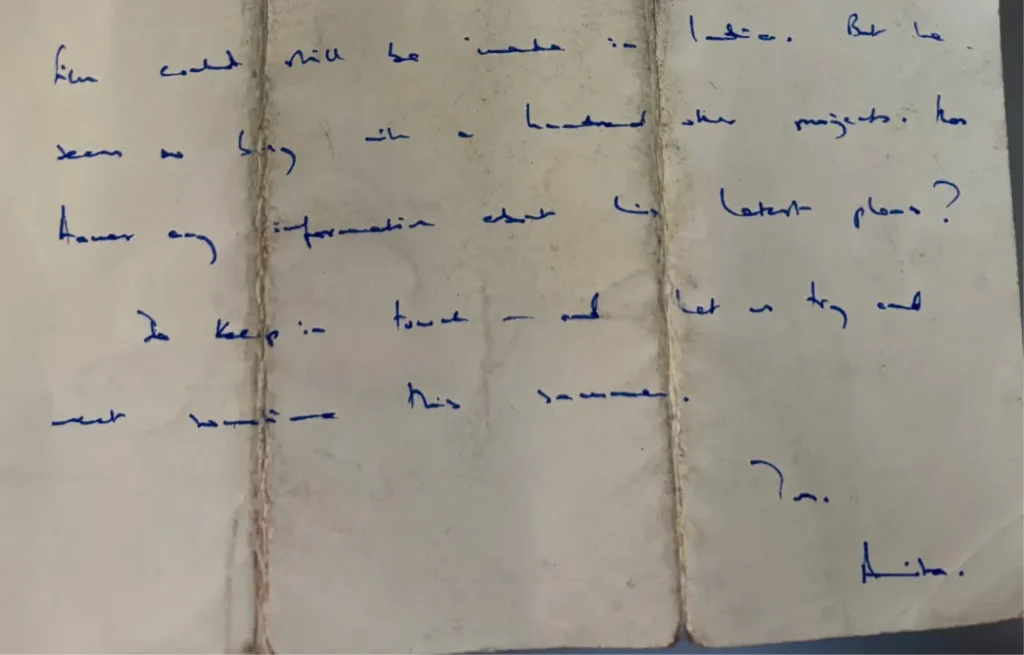 film could still be made in India. But he
seems so busy with a hundred other projects.
any information about his latest plans?
Do keep in touch — and let us try and
meet sometime this summer.
Anita.